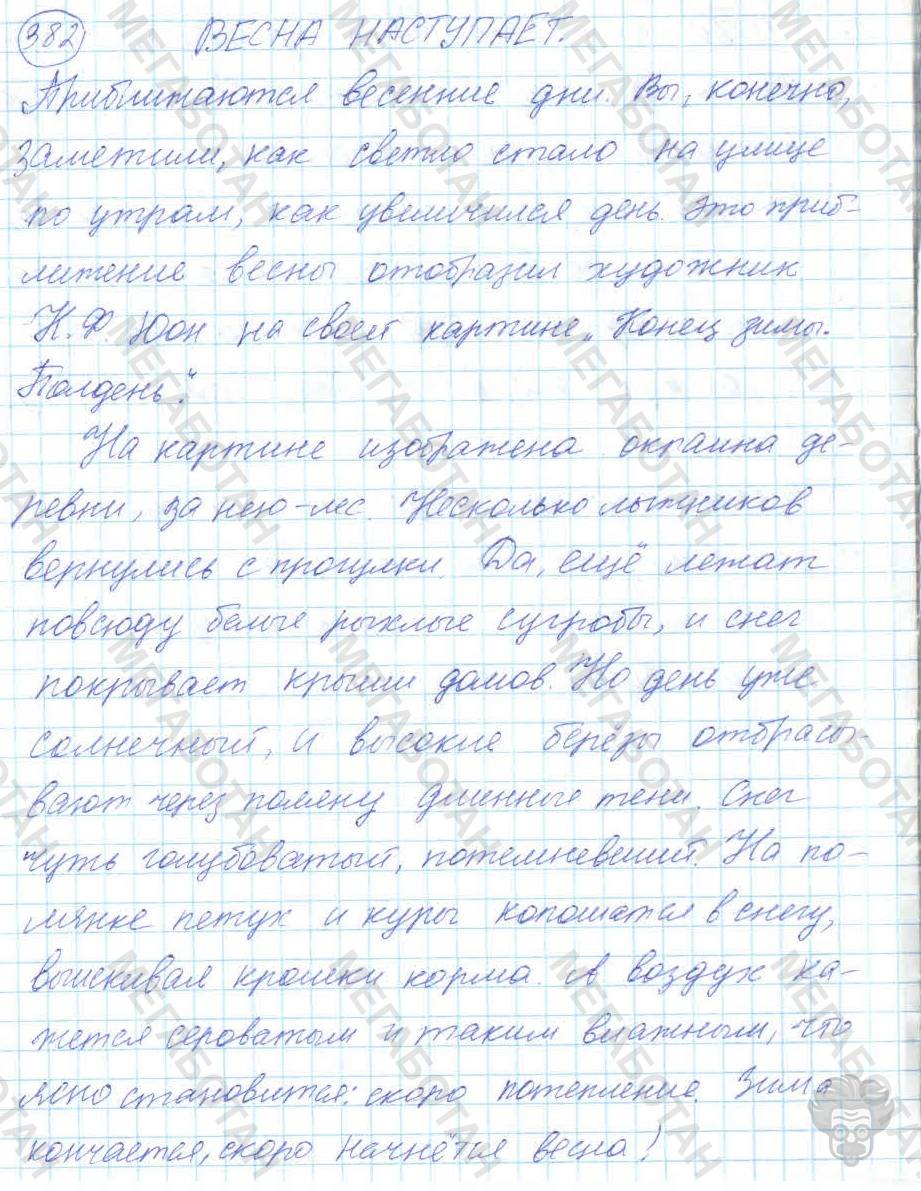 382 ВЕСНА НАСТУПАЕТ.
Приближаются весенние дни. Вы, конечно,
заметили, как светло стало на улице
по утрам, как увеличился день. Это приб-
лижение весны отобразил художник
К.Ф. Юон на своей картине „Конец зимы.
Полдень“.
На картине изображена окраина де-
ревни, за нею - лес. Несколько лыжников
вернулись с прогулки. Да, ещё лежат
повсюду белые рыхлые сугробы, и снег
покрывает крыши домов. Но день уже
солнечный, и высокие берёзы отбрасы-
вают через поляну длинные тени. Снег
чуть голубоватый, потемневший. На по-
лянке петух и куры копошатся в снегу,
выискивая крошки корма. А воздух ка-
жется сероватым и таким влажным, что
ясно становится: скоро потепление. Зима
кончается, скоро начнётся весна!
МЕГАБОТАН